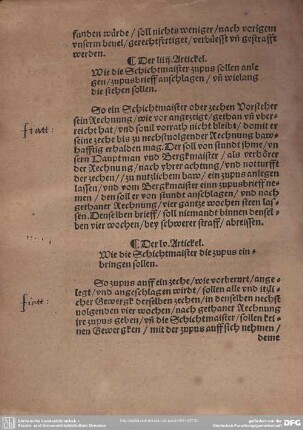 funden würde / soll nichts weniger / nach vorigem
vnserm beuel / gerechtfertiget / verbüesst vñ gestrafft
werden.
¶ Der liiij. Artickel.
Wie die Schichtmaister zupus sollen anle
gen / zupusbrieff anschlagen / vñ wielang
die stehen sollen.
So ein Schichtmaister oder zechen Vorsteher
sein Rechnung / wie vor angezeigt / gethan vñ vber-
reicht hat / vnd souil vorrath nicht bleibt / domit er
seine zech bis zu nechstuolgender Rechnung baw-
hafftig erhalden mag. Der soll von stundt jhme / vn
sern Hauptman vnd Bergkmaister / als verhörer
der Rechnung / nach achtung / vnd notturfft
der zechen / zu nutzlichem baw / ein zupus anlegen
lassen / vnd vom Bergkmaister einn zupusbrieff ne-
men / den soll er von stundt anschlagen / vnd nach
gethaner Rechnung / vier gantze wochen steen las-
sen. Denselben brieff / soll niemandt binnen densel-
ben vier wochen / bey schwerer straff / abreissen.
¶ Der lv. Artickel.
Wie die Schichtmaister die zupus ein-
bringen sollen.
So zupus auff ein zeche / wie vorberurt / ange-
legt / vnd angeschlagen wirdt / sollen alle vnd itzli-
cher Gewergk derselben zechen / in denselben nechst
uolgenden vier wochen / nach gethaner Rechnung
jre zupus geben / vñ die Schichtmaister / sollen kei-
nen Gewergken / mit der zupus auff sich nehmen /
deme